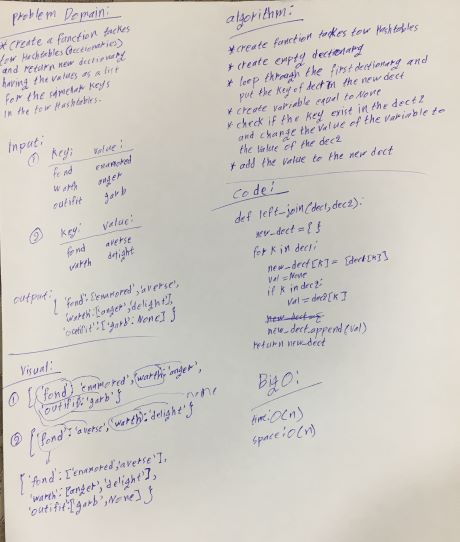 problem Domain:
* create a function tackes
tow Hashtables (dectionaries)
and return new dectionary
having the values as a list
for the same keys
in the tow Hashtables.
Input:
① Key: value:
fond enamored
warth anger
outifit garb
② Key: value:
fond averse
warth delight
output:
{ 'fond': ['enamored', 'averse',
'warth: ['anger', 'delight'],
'outifit': ['garb': None] }
Visual:
① { 'fond': 'enamored', 'warth: 'anger',
'outifit: 'garb' }
None
② { 'fond': 'averse', 'warth: 'delight' }
{ 'fond': ['enamored', 'averse'],
'warth: ['anger', 'delight'],
'outifit: ['garb', None] }
algorithm:
* create function tackes tow Hashtables
* create empty dectionary
* loop through the first dectionary and
put the key of dect1 in the new dect
* create variable equal to None
* check if the key exist in the dect2
and change the value of the variable to
the value of the dec2
* add the value to the new dect
Code:
def left_join(dec1, dec2):
new_dect = { }
for k in dec1:
new_dect[k] = [dec1[k]]
val = None
if k in dec2:
val = dec2[k]
new_dect = {
new_dect.append(val)
return new_dect
Big O:
time: O(n)
space: O(n)